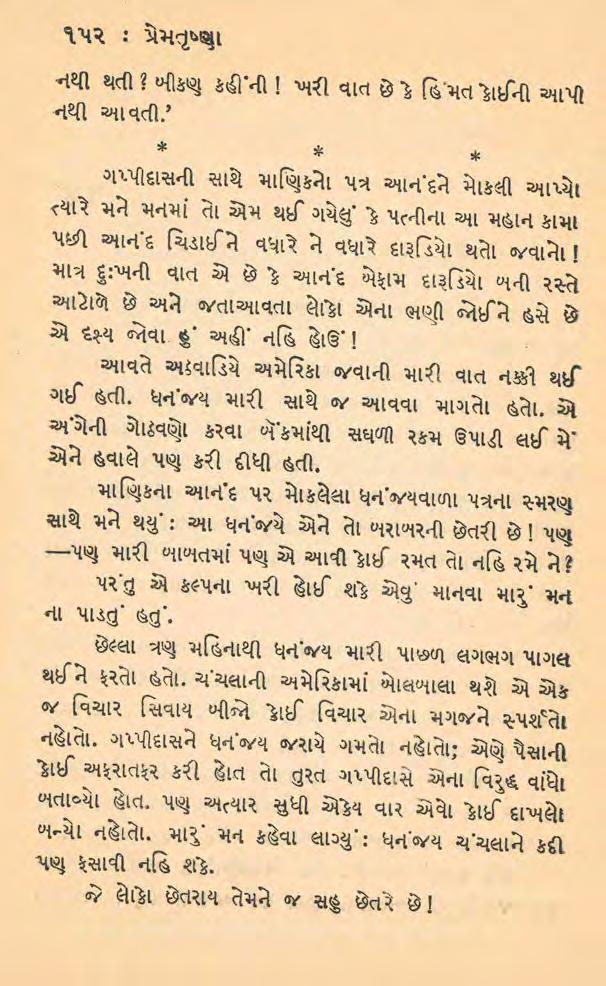 ૧૫૨ : પ્રેમતૃષ્ણા
નથી થતી ? બીકણ કહીંની ! ખરી વાત છે કે હિંમત કોઈની આપી
નથી આવતી.’
* * *
ગપ્પીદાસની સાથે માણિકનો પત્ર આનંદને મોકલી આપ્યો
ત્યારે મને મનમાં તો એમ થઈ ગયેલું કે પત્નીના આ મહાન કામા
પછી આનંદ ચિડાઈને વધારે ને વધારે દારૂડિયો થતો જવાનો !
માત્ર દુઃખની વાત એ છે કે આનંદ બેફામ દારૂડિયો બની રસ્તે
આટોળે છે અને જતાઆવતા લોકો એના ભણી જોઈને હસે છે
એ દૃશ્ય જોવા હું અહીં નહિ હોઉં !
આવતે અઠવાડિયે અમેરિકા જવાની મારી વાત નક્કી થઈ
ગઈ હતી. ધનંજય મારી સાથે જ આવવા માગતો હતો. એ
અંગેની ગોઠવણો કરવા બૅંકમાંથી સઘળી રકમ ઉપાડી લઈ મેં
એને હવાલે પણ કરી દીધી હતી.
માણિકના આનંદ પર મોકલેલા ધનંજયવાળા પત્રના સ્મરણ
સાથે મને થયું : આ ધનંજયે એને તો બરાબરની છેતરી છે ! પણ
—પણ મારી બાબતમાં પણ એ આવી કોઈ રમત તો નહિ રમે ને ?
પરંતુ એ કલ્પના ખરી હોઈ શકે એવું માનવા મારું મન
ના પાડતું હતું.
છેલ્લા ત્રણ મહિનાથી ધનંજય મારી પાછળ લગભગ પાગલ
થઈને ફરતો હતો. ચંચલાની અમેરિકામાં બોલબાલા થશે એ એક
જ વિચાર સિવાય બીજો કોઈ વિચાર એના મગજને સ્પર્શતો
નહોતો. ગપ્પીદાસને ધનંજય જરાયે ગમતો નહોતો; એણે પૈસાની
કોઈ અફરાતફર કરી હોત તો તુરત ગપ્પીદાસે એના વિરુદ્ધ વાંધો
બતાવ્યો હોત. પણ અત્યાર સુધી એકેય વાર એવો કોઈ દાખલો
બન્યો નહોતો. મારું મન કહેવા લાગ્યું : ધનંજય ચંચલાને કદી
પણ ફસાવી નહિ શકે.
જે લોકો છેતરાય તેમને જ સહુ છેતરે છે !